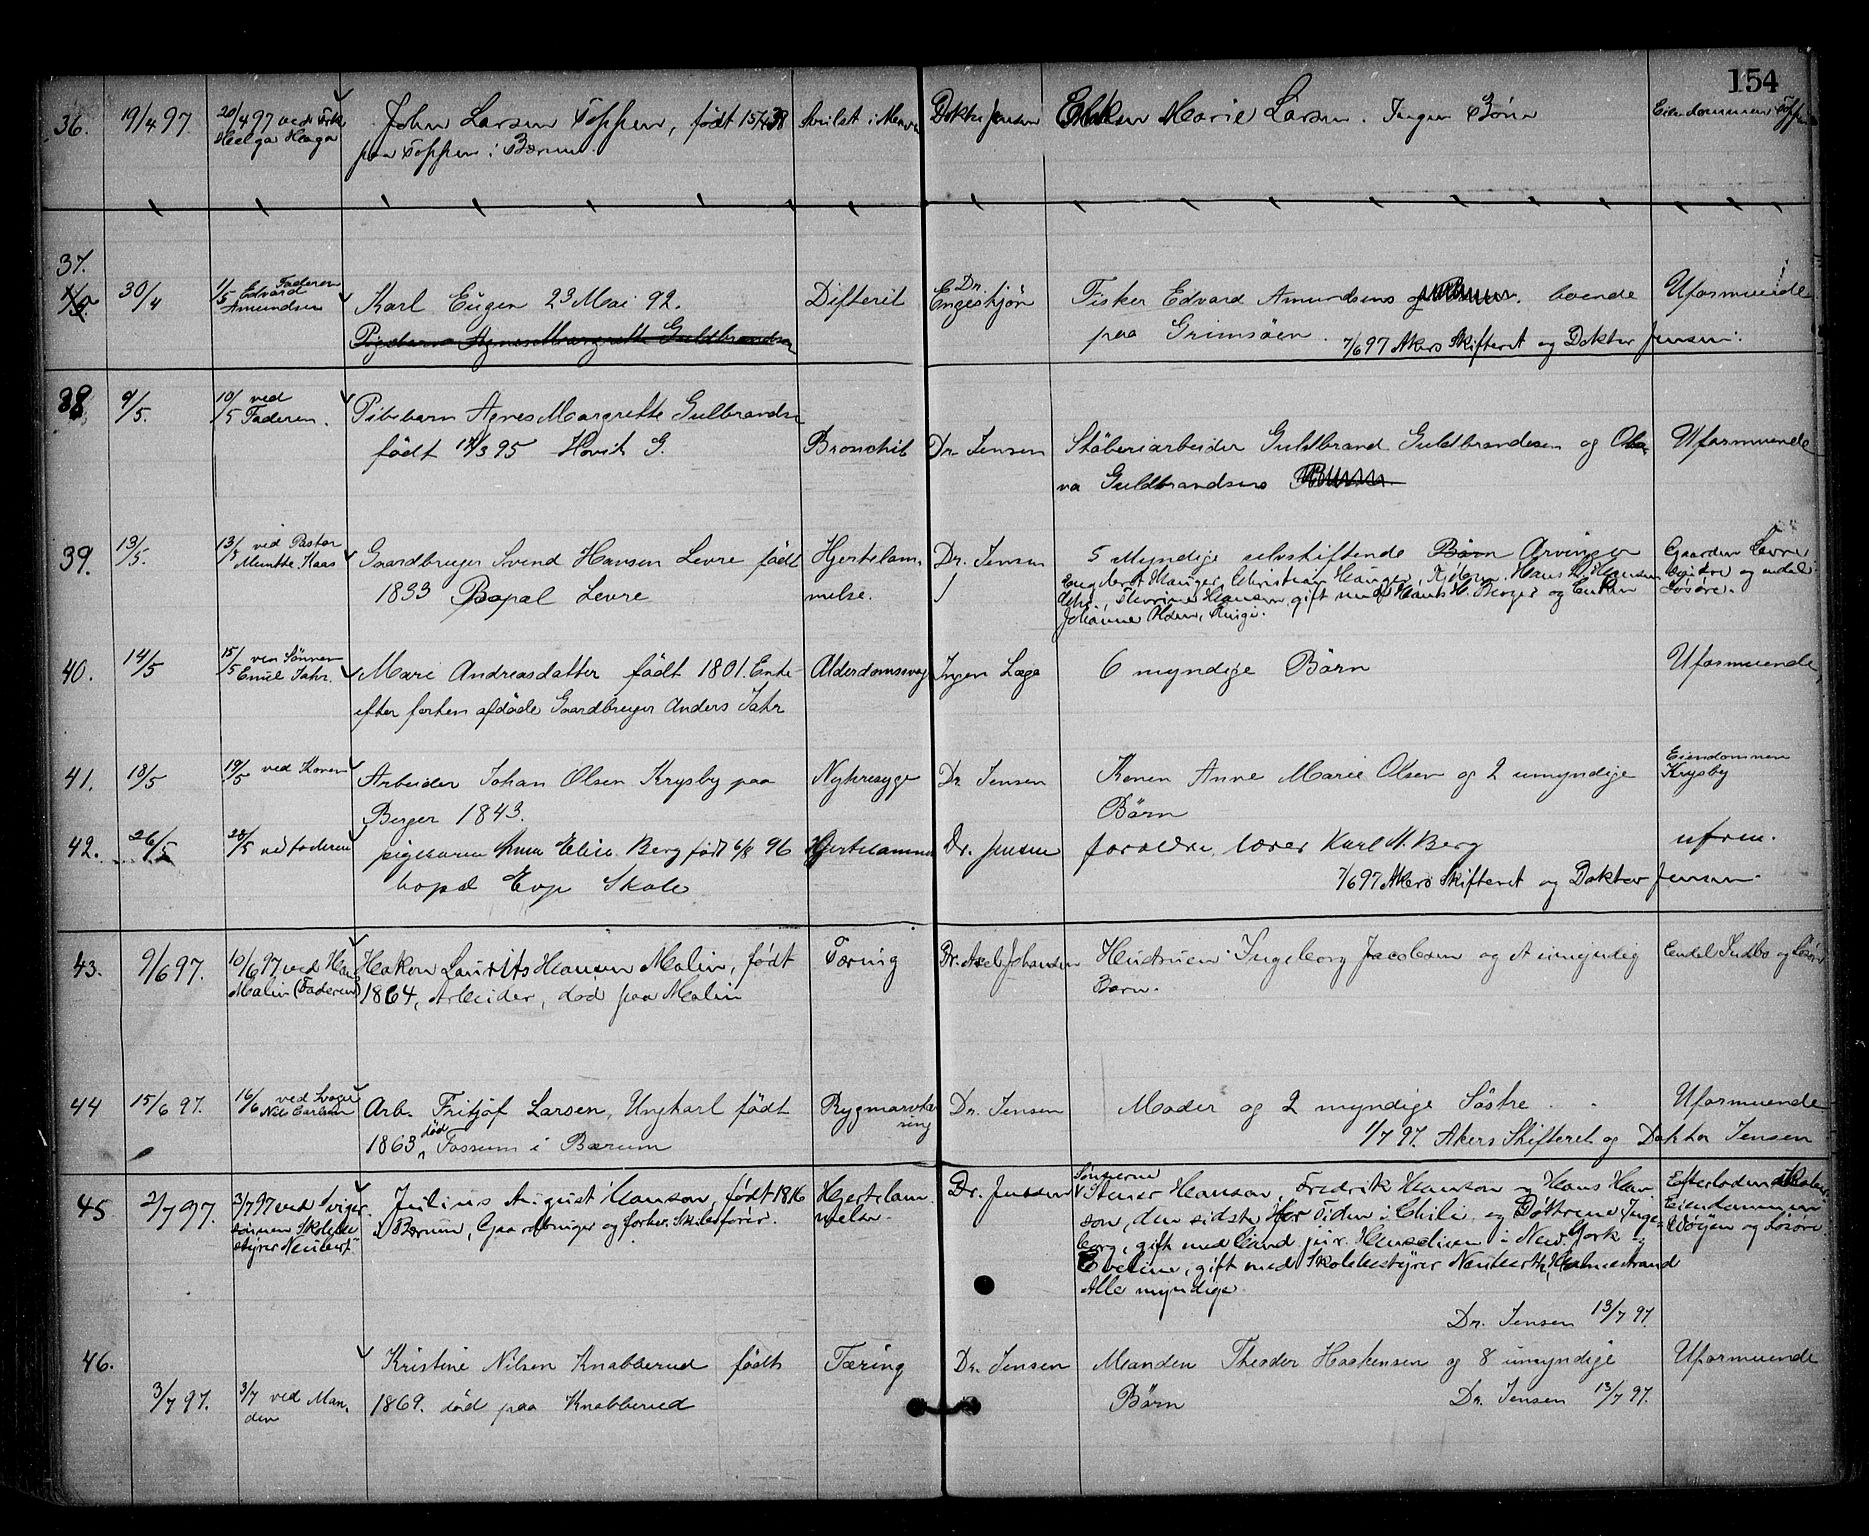 154
36. 19/4 97. 20/4 97 ved
Helga Haga
John Larsen Toppen, født 15/4 38
paa Toppen i Bærum.
Doktor Jensen
Enken Marie Larsen. Ingen Børn
Eiendommen Toppen
37.
30/4
1/5 Faderen
Edvard
Amundsen
Karl Eugen 23 Mai 92.
Pigebarn Agnes Margrethe Guldbrandsen
Difterit
Dr.
Engeskjøn
Fisker Edvard Amundsens og boende
paa Grimsøen.
7/6 97 Akers Skifteret og Doktor Jensen.
Uformuende
38. 9/5. 10/5 ved
Faderen.
Pibebarn Agnes Margrette Gulbrandsen
født 14/3 95 Hovik G.
Bronchit
Dr. Jensen
Støberiarbeider Guldbrand Guldbrandsen og Ola-
va Guldbrandsens
Uformuende
39. 13/5. 13/5 ved Pastor
Munthe Kaas
Gaardbruger Svend Hansen Levre født
1833 Bopæl Levre
Hjertelam-
melse.
Dr. Jensen
5 Myndige selvskiftende Børn Arvinger
Hauger, Christian Hauger, Hans H. Hansen
Thorine Hansen, gift med Hans H. Berger og Enken
Johanne Olsen, Ringi.
Gaarden Levre
og endel
Løsøre.
40. 14/5 15/5 ved Sønnen
Emil Jahr.
Mari Andreasdatter født 1801. Enke
efter forhen afdøde Gaardbruger Anders Jahr
Alderdomssvag
Ingen Læge
6 myndige Børn
Uformuende
41. 18/5 19/5 ved Konen
Arbeider Johan Olsen Krysby paa
Berger 1843.
Nyresyge
Dr Jensen
Konen Anne Marie Olsen og 2 umyndige
Børn
Eiendommen
Krysby
42. 26/5 28/5 ved faderen
pigebarn Anna Elise Berg født 6/8 96
bopæl Evje Skole
Hjertelammelse
Dr. Jensen
forældre, lærer Karl M. Berg
7/6 97 Akers Skifteret og Doktor Jensen.
uform.
43. 9/6 97. 10/6 97 ved Hans
Malin (Faderen)
Hakon Laurits Hansen Malin, født
1864, Arbeider, død paa Malin
Tæring
Dr. Axel Johansen
Hustruen Ingeborg Jacobsen og 1 umyndig
Barn.
Endel Indbo og Løsøre
44 15/6 97. 16/6 ved Svoger
Nils Carlsen
Arb. Fritjof Larsen, Ungkarl født
1863, død Fossum i Bærum
Rygmarvstæ-
ring
Dr. Jensen
Moder og 2 myndige Søstre.
1/7 97. Akers Skifteret og Doktor Jensen
Uformuende
45 2/7 97. 3/7 97 ved Sviger-
sønnen Skolebe-
styrer Neuberth
Julius August Hanson, født 1816
i Bærum, Gaardbruger og forhen Skibsfører.
Hjertelam-
melse.
Dr. Jensen
Sønnerne
Stener Hanson, Fredrik Hanson og Hans Han-
son, den sidste for Tiden i Chili, og Døttrene Inge-
borg, gift med Cand jur. Henschien i New York og
Eveline, gift med Skolebestyrer Neuberth, Holmestrand
Alle myndige
Dr. Jensen 13/7 97.
Efterladenskaber:
Eiendommen
Wøyen og Løsøre
46.
3/7 97. 3/7 ved Man-
den
Kristine Nilsen Knabberud født
1869. død paa Knabberud
Tæring
Dr. Jensen
Manden Theodor Haakensen og 8 umyndige
Børn
Dr. Jensen 13/7 97.
Uformuende